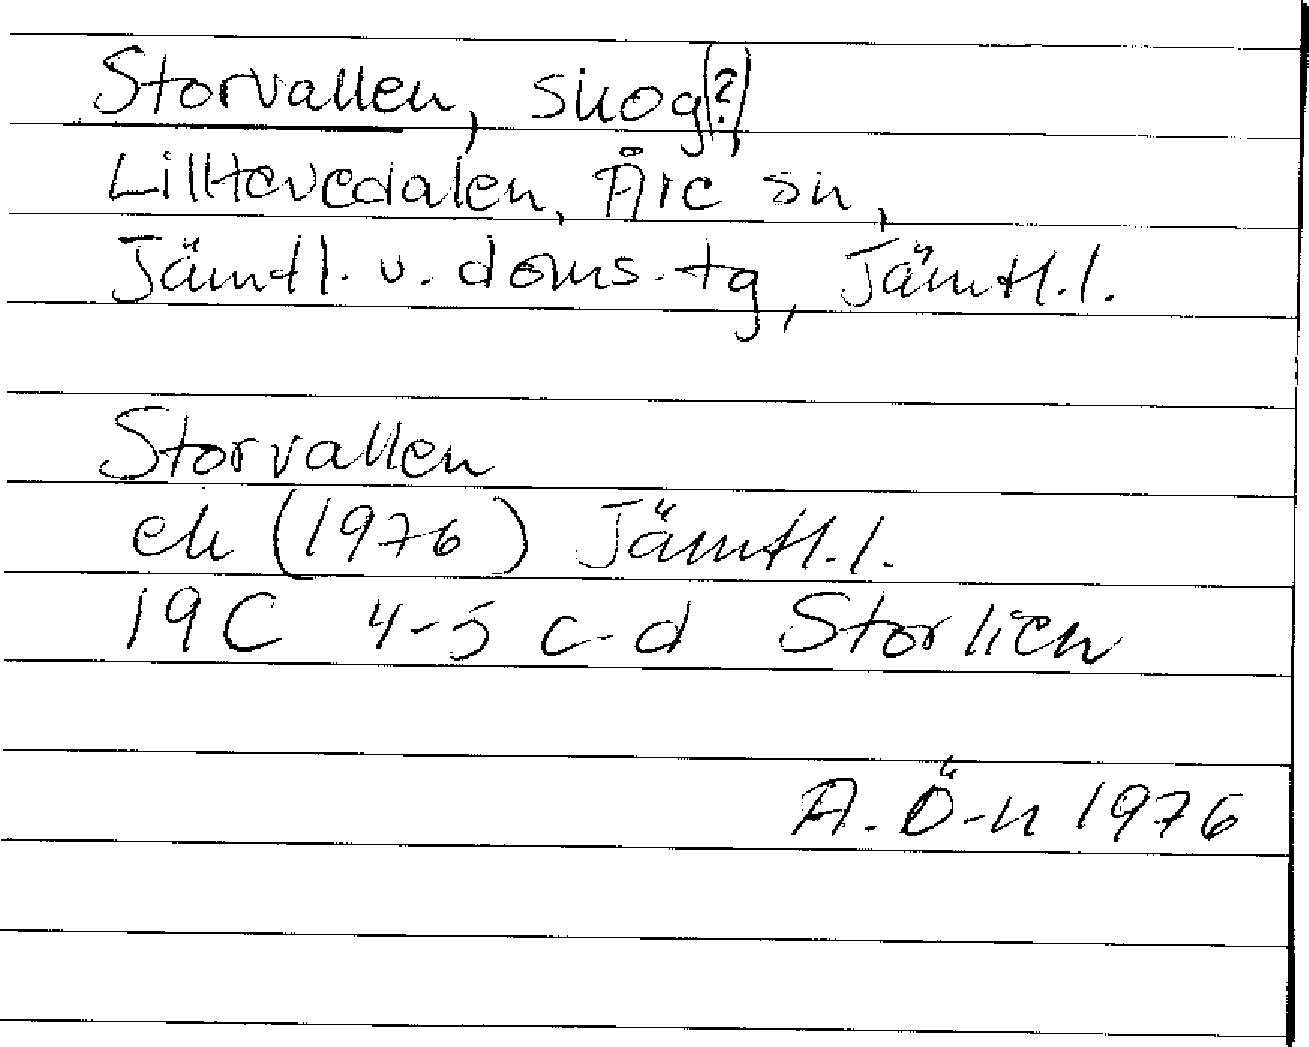 Storvallen, skog(?)
Lilltevedalen, Åre sn,
Jämtl. v. doms. tg, Jämtl.l.
Storvallen
ek (1976) Jämtl.l.
19C 4-5 c-d Storlien
A. Ö-n 1976